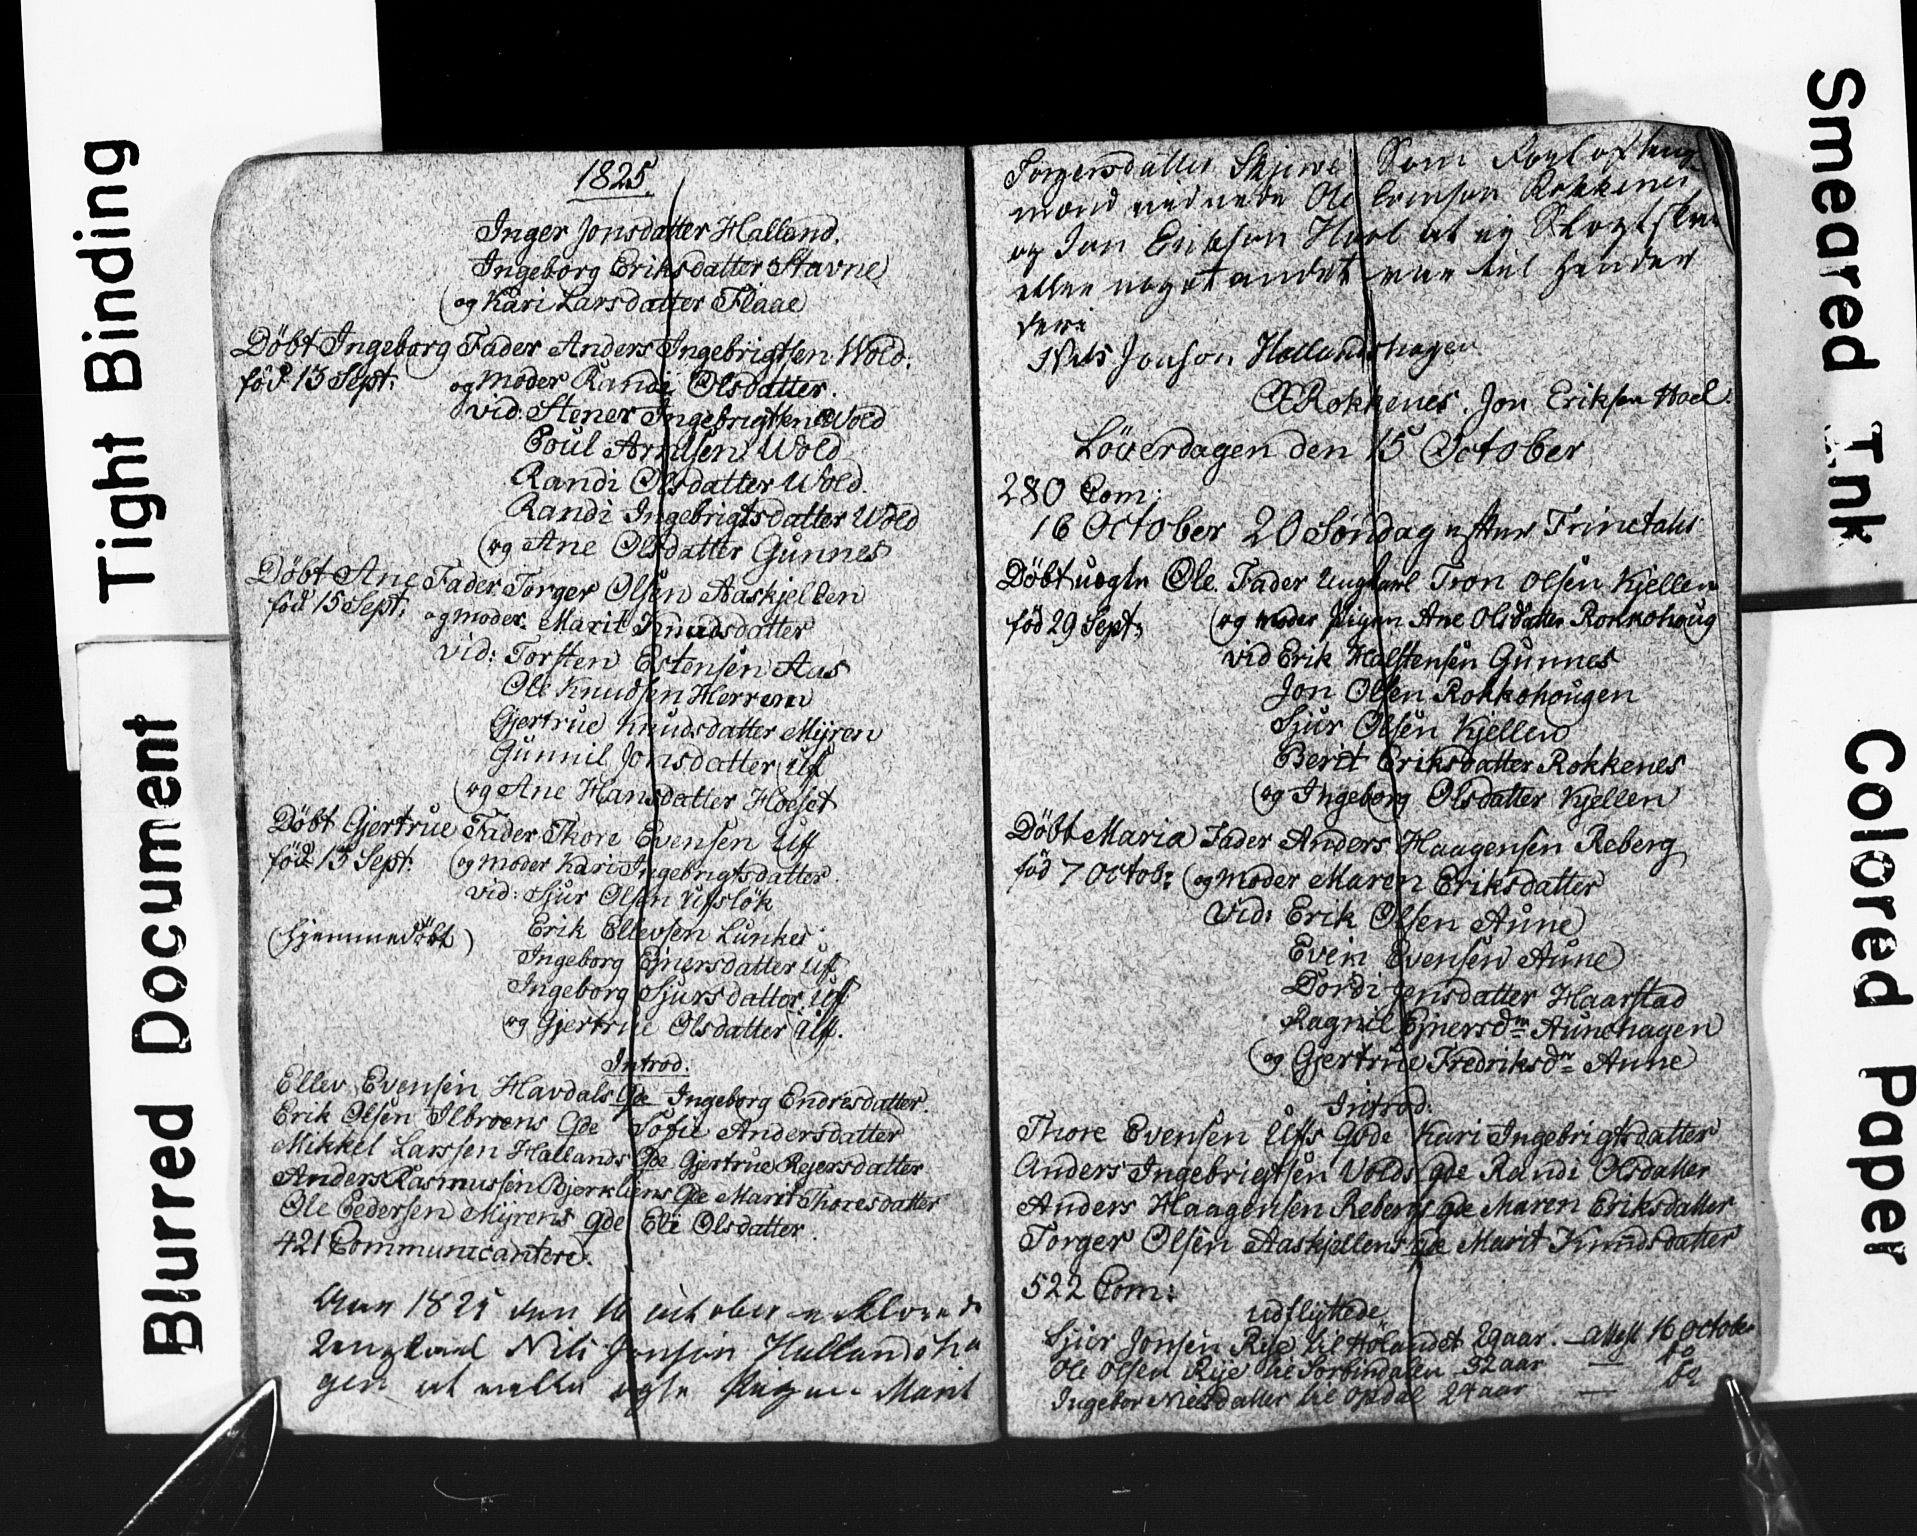 Tight Binding
Blurred Document
1825.
Inger Jonsdatter Halland.
Ingeborg Eriksdatter Stavne
og Kari Larsdatter Flaae
Döbt Ingeborg Fader Anders Ingebrigtsen Wold.
föd 13 Sept: og moder Randi Olsdatter.
vid: Stener Ingebrigtsen Wold
Poul Arntsen Wold
Randi Olsdatter Wold.
Randi Ingebrigtsdatter Wold
og Ane Olsdatter Gunnes
Döbt Ane Fader Torger Olsen Aaskjellen
föd 15 Sept: og moder. Marit Knudsdatter
vid: Torsten Estensen Aas
Ole Knudsen Herrem
Gjertrue Knudsdatter Mÿren
Gunnil Jonsdatter Uf
og Ane Hansdatter Hoeset
Döbt Gjertrue Fader Thore Evensen Uff
föd 13 Sept: og moder Kari Ingebrigtsdatter.
vid: Sjur Olsen Ufslök
(hjemmedöbt) Erik Ellevsen Lunkes
Ingeborg Ejnersdatter Uf
Ingeborg Sjursdatter Uf
og Gjertrue Olsdatter Uf.
Introd:
Ellev Evensen Havdals Qde Ingeborg Endresdatter.
Erik Olsen Ilbroens Qde Tofil Andersdatter
Mikkel Larssen Hallands Qde Gjertrue Rejersdatter
Anders Rasmussen Bjerkliens Qde Marit Thoresdatter
Ole Pedersen Mÿrens Qde Eli Olsdatter.
421 Communicantere.
Aar 1825 den 16 october erklærede
Ungkarl Nils Jonson Hallandsha
gen at ville ægte Pigen Marit
Torgersdatter Skjerve Som
mænd Ole Ermson Rokkenes
og Jon Erikson Hoel at ej Slægtska
eller noget andet var til hinder
deri
Nils Jonson Hallandshagen
OERokkenes. Jon Eriksen Hoel.
Löverdagen den 15 October
280 Com:
16 October 20 Söndag efter Trinetatis
Döbt uægte Ole. Fader Ungkarl Tron Olsen Kjellen
föd 29 Sept: og moder Pigen Ane Olsdatter Rokkohoug
vid Erik Halstensen Gunnes
Jon Olsen Rokkohougen
Sjur Olsen Kjellen
Berit Eriksdatter Rokkenes
og Ingeborg Olsdatter Kjellen
Döbt Maria Fader Anders Haagensen Reberg
föd 7 Octob: og moder Maren Eriksdatter
Vid: Erik Olsen Aune
Even Evensen Aune
Dordi Jensdatter Haarstad
Ragnil Ejnersdr Aunehagen
og Gjertrue Fredriksdr Aune
Introd:
Thore Evensen Uffs Qde Kari Ingebrigtsdatter
Anders Ingebrigtsen Volds Qde Randi Olsdatter
Anders Haagensen Rebergs Qde Maren Eriksdatter
Torger Olsen Aaskjellens Qde Marit Knudsdatter
522 Com:
udflyttede
Sjur Jonsen Rije til Hölandet 29 aar. attest 16 October
Ole Olsen Rije til Sorbindalen 32 aar — do
Ingebor Nielsdatter til Opdal 24 aar — do
Smeared Ink
Colored Paper